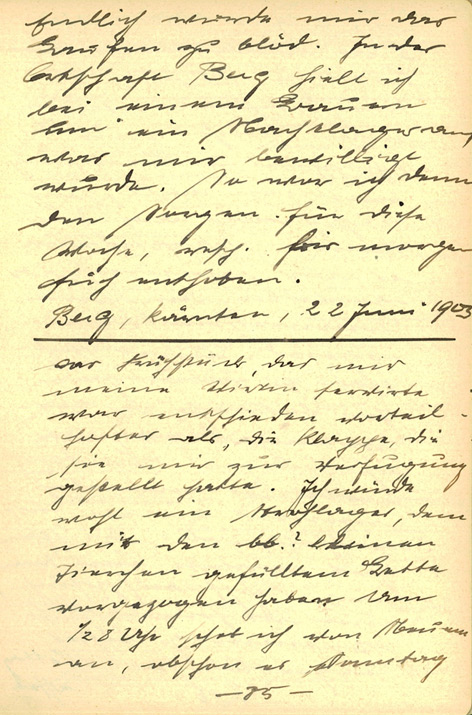 Endlich wurde mir das
Laufen zu blöd. In der
Ortschaft Berg hielt ich
bei einem Bauern
um ein Nachtlager an,
was mir bewilligt
wurde. So war ich denn
den Sorgen für diese
Woche, resp. bis morgen
früh enthoben.
Berg, Kärnten, 22 Juni 1903
Das Frühstück, das mir
meine Wirtin servirte
war entschieden vorteil-
hafter als, die Klappe, die
sie mir zur Verfügung
gestellt hatte. Ich würde
wohl ein Heulager, dem
mit den bb.? kleinen
Tierchen gefülltem Bette
vorgezogen haben Um
1/2 8 Uhr schob ich von Neuem
an, obschon es Sonntag
- 85 -